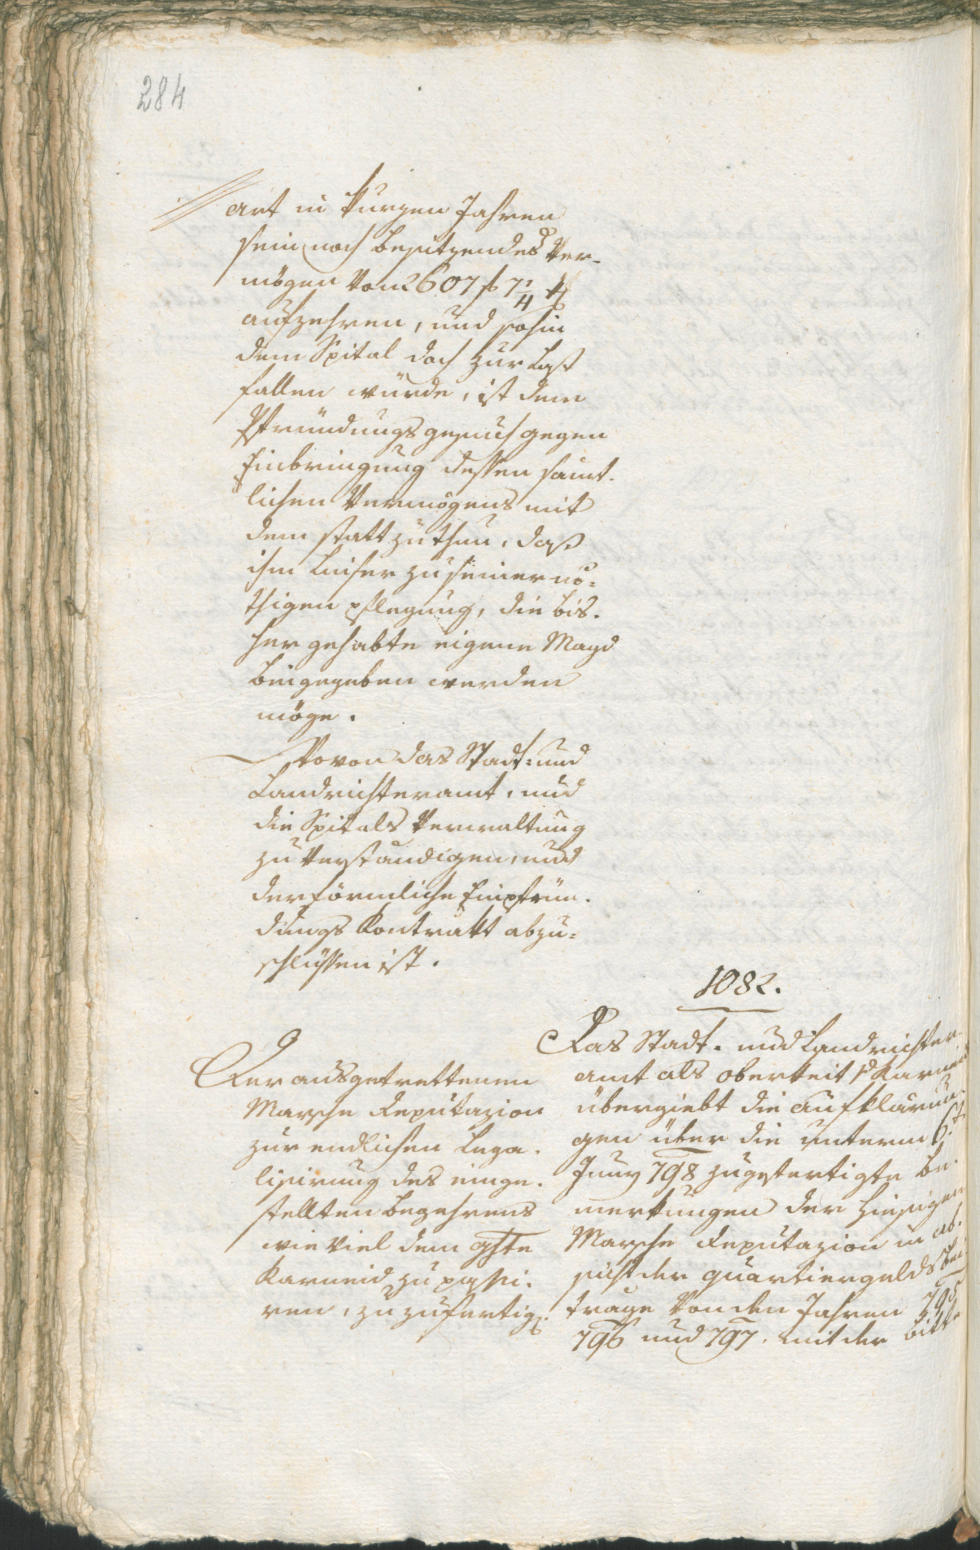 284
art in kurzen Jahren
sein noch besitzendes Ver-
mögen von 2607 f 7 1/4 x
aufzehren, und sohin
dem Spital doch zur Last
fallen würde, ist dem
Pfründungsgesuch gegen
Einbringung dessen sämt-
lichen Vermögens mit
dem statt zu thun, daß
ihm Kaiser zu seiner nö-
thigen pflegung, die bis-
her gehabte eigene Magd
beigegeben werden
möge.
Wovon das Stadt- und
Landrichteramt, und
die Spitals Verwaltung
zu verständigen, und
der förmliche Einpfrün-
dungs Kontrakt abzu-
schlüssen ist.
Der ausgetrettenen
Marsche Deputazion
zur endlichen Lega-
lisirung des einge-
stellten Begehrens
wie viel dem Ghte
Karneid zu passi-
ren, zuzufertig.
1082.
Das Stadt- und Landrichter-
amt als obrkeit zu Karneid
übergiebt die Aufklärun-
gen über die unterm 6.t
Juny 798 zugefertigte Be-
merkungen der hiesigen
Marsche Deputazion in ab-
sicht der quartiergelds bei-
träge von den Jahren 795
796 und 797. mit der bitte